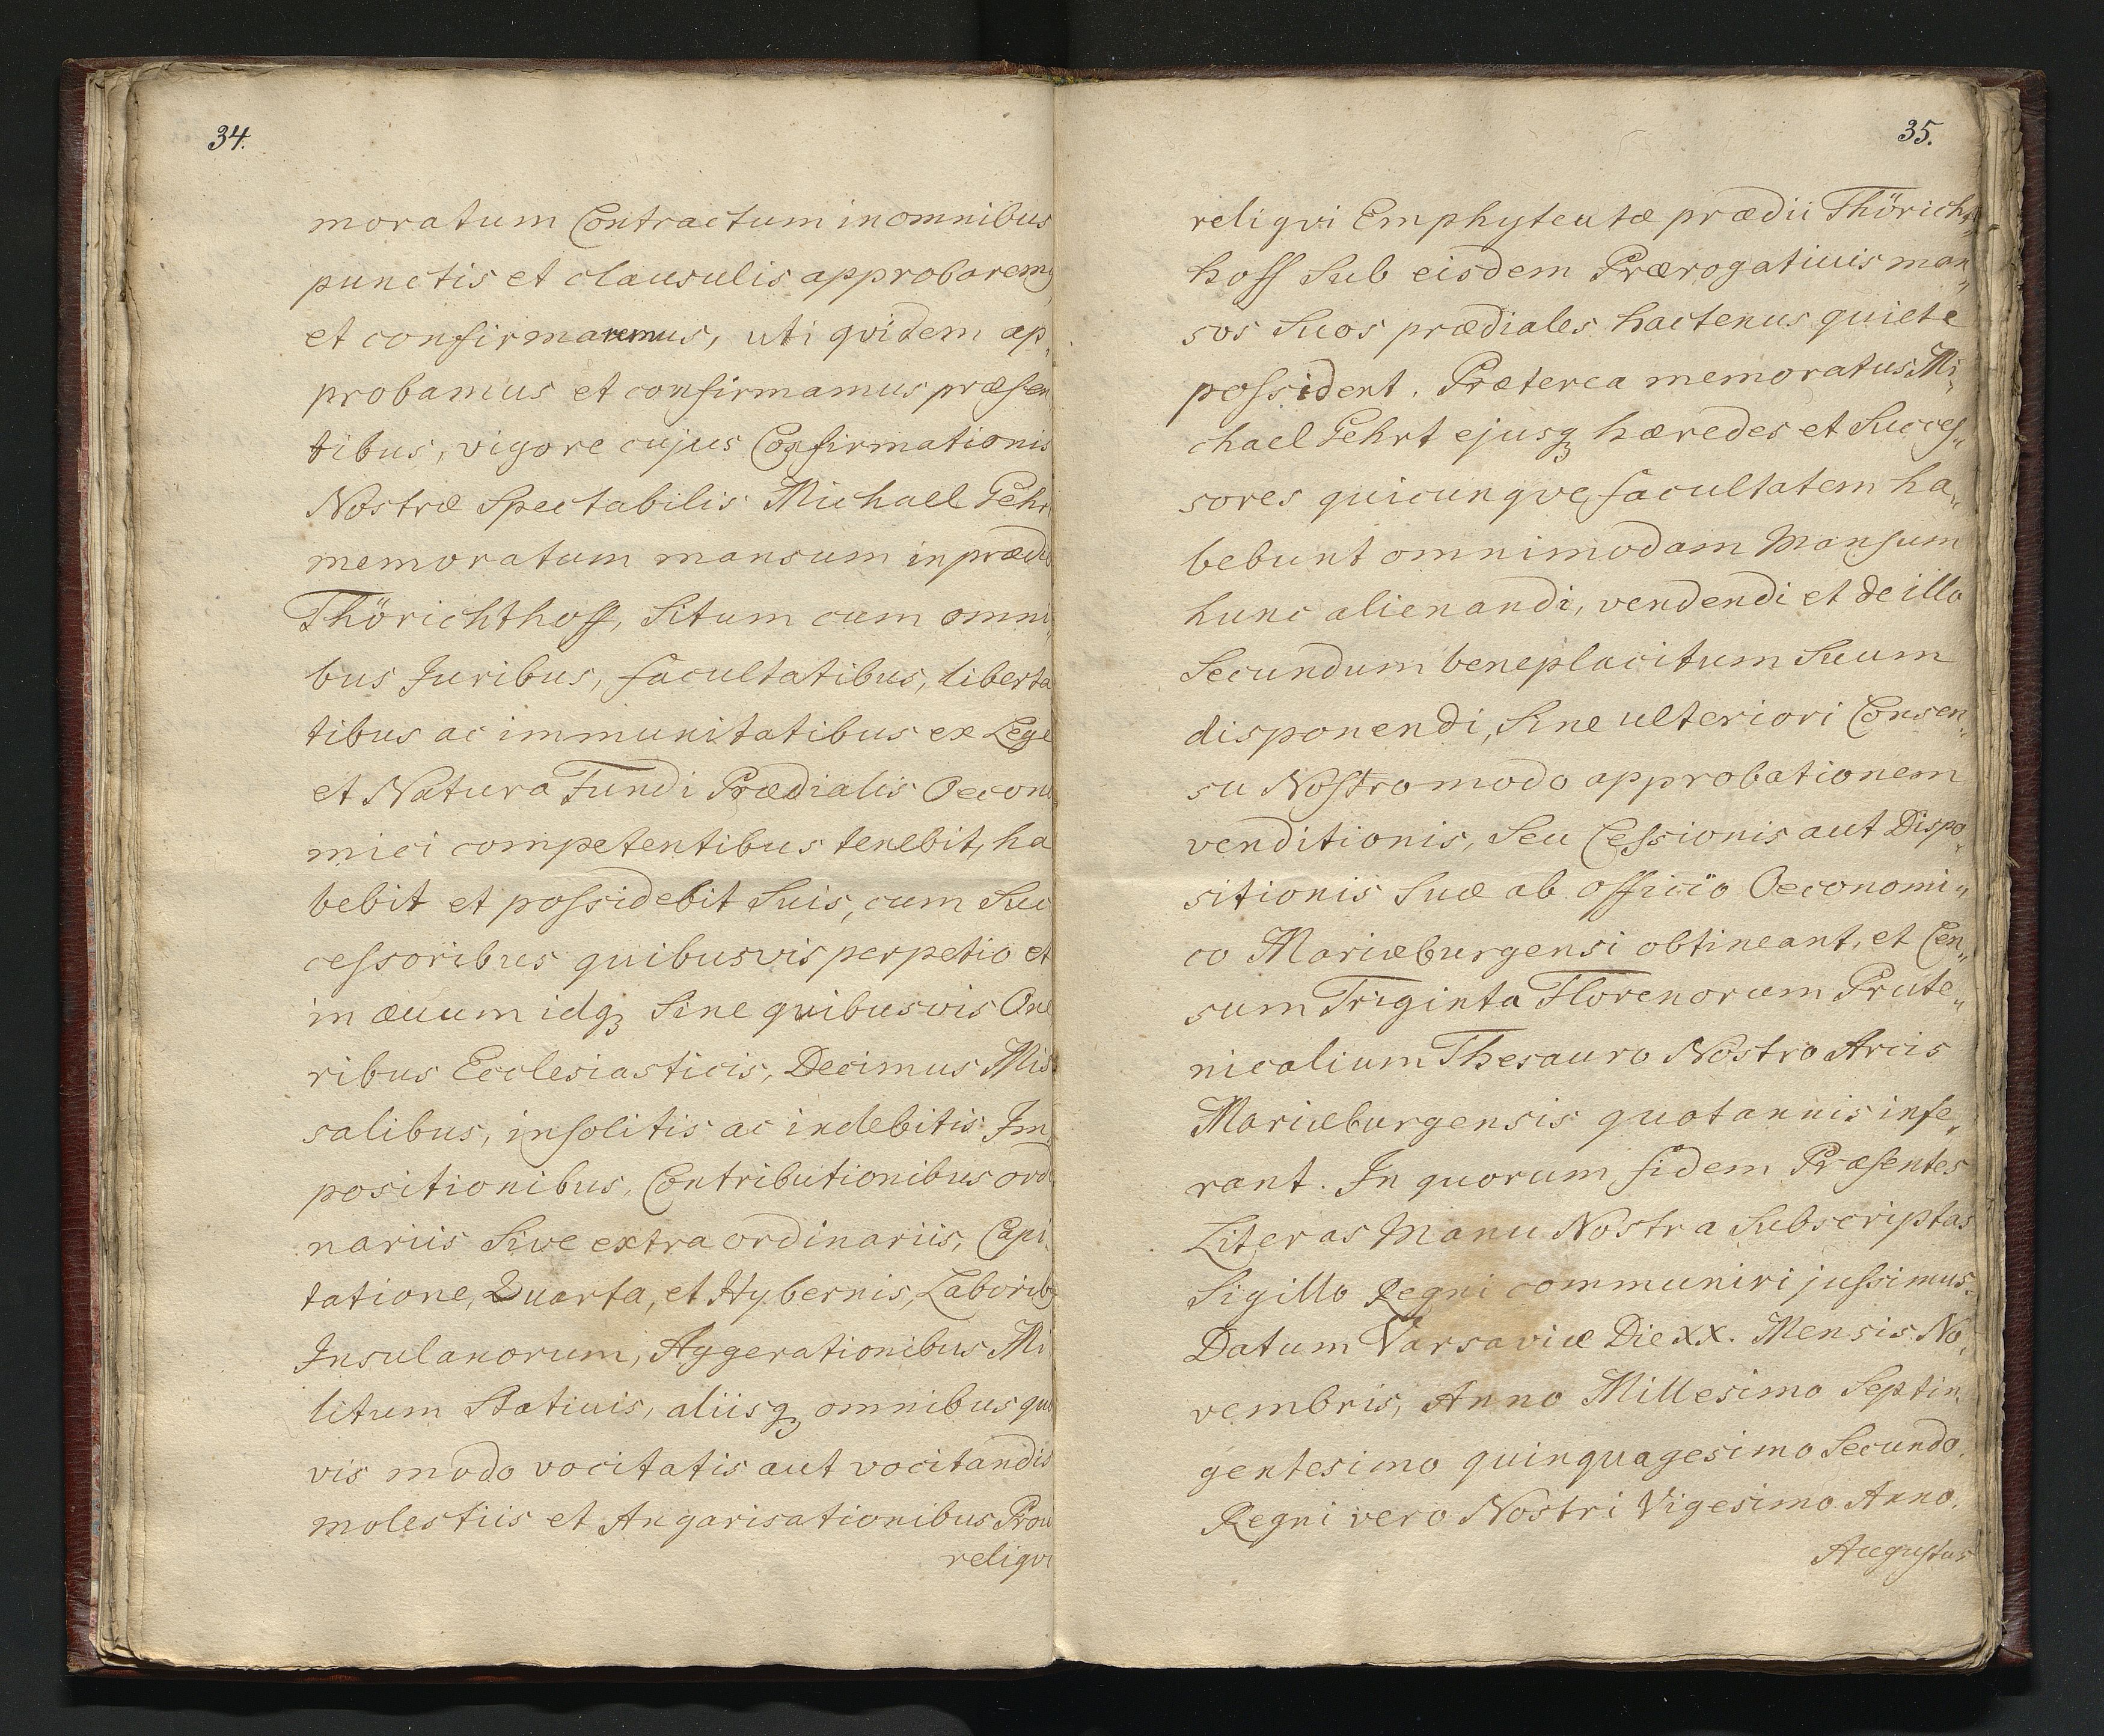 34.
moratum Contractum in omnibus
punctis et clausulis approbaremq
et confirmaremus, uti qvidem ap„
probamus et confirmamus præsen
tibus, vigore cujus Confirmationis
Nostræ Spectabilis Michael Gehr
memoratum mansum in prædio
Thörichthoff, Situm cum omni„
bus Juribus, facultatibus, liberta
tibus ac immunitatibus ex Lege
et Natura Fundi Prædialis Oecono
mici competentibus tenebit, ha
bebit et possidebit Suis, cum Suc
cessoribus quibusvis perpetio et
in æuum idqȝ Sine quibusvis One
ribus Ecclesiasticis, Decimus Mis
salibus, insolitis ac indebitis Im„
positionibus, Contributionibus ordi
nariis Sive extra ordinariis, Capi„
tatione, Quarta, et Hybernis, Laboribȝ
Insulanorum, Aggerationibus Mi
litum Stativis, aliisqȝ omnibus quo
vis modo vocitatis aut vocitandis
molestiis et Angarisationibus Prou
reliqvi
35.
reliqvi Emphyteutæ prædii Thöricht„
hoff Sub eisdem Prærogativis man„
sos Suos prædiales hactenus quiete
possident. Præterea memoratus Mi„
chael Gehrt ejusqȝ hæredes et Succes„
sores quicunqve facultatem ha„
bebunt omnimodam Mansum
hunc alienandi, vendendi et de illo
Secundum beneplacitum Suum
disponendi, Sine ulteriori Consen„
su Nostro modo approbationem
venditionis, Seu Cessionis aut Dispo„
sitionis Suæ ab officio Oeconomi„
co Mariæburgensi obtineant, et Cen„
sum Triginta Florenorum Prute„
nicalium Thesauro Nostro Arcis
Mariæburgensis quotannis infe„
rant. In quorum fidem Præsentes
Literas Manu Nostra Subscriptas
Sigillo Regni communiri jussimus.
Datum Varsaviæ Die XX. Mensis No„
vembris, Anno Millesimo Septin„
gentesimo quinquagesimo Secundo.
Regni vero Nostri Vigesimo Anno.
Augustus